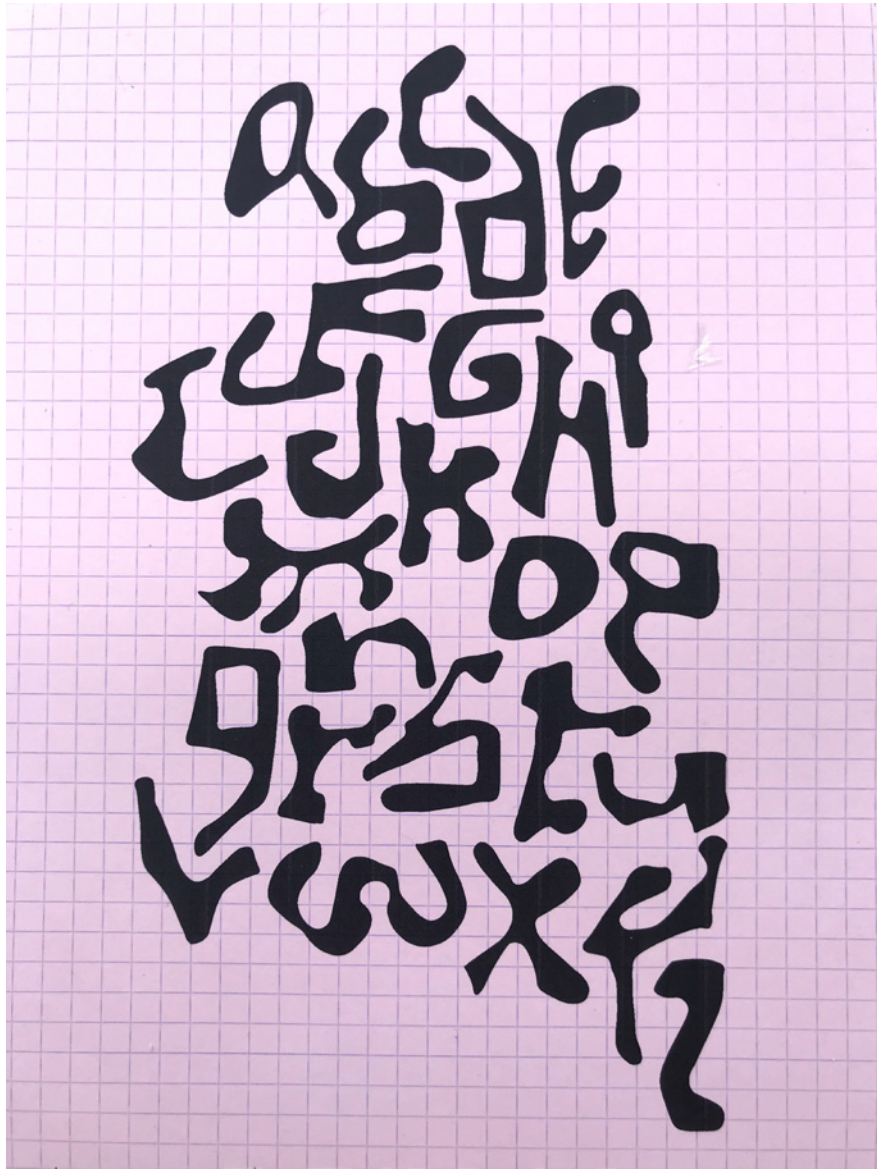 abcde
fGHi
LJk
mnop
qrstu
vwxyz